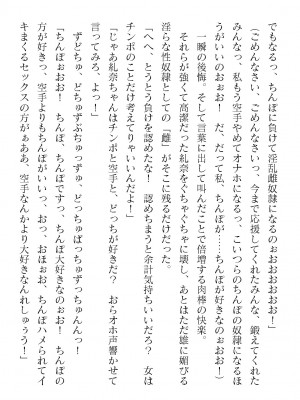 でもなるっ、ちんぽに負けて淫乱雌奴隷になるのぉおおおおおお！
「ごめんなさい、ごめんなさいっ、今まで応援してくれたみんな、鍛えてくれた
みんなっ、私もう空手やめてオナホになるっ、こいつらのちんぽの奴隷になるほ
うがいいのぉおお！　だ、だって私、ちんぽが……ちんぽが好きなのぉおお！）
一瞬の後悔。そして言葉に出して叫んだことで倍増する肉棒の快楽。
それらが強く高潔だった紀奈をぐちゃぐちゃに壊し、あとはただ雄に媚びる
淫らな性奴隷としての「雌」がそこに残るだけだった。
「へへ、とうとう負けを認めたな！　認めちまうと余計気持ちいいだろ？　女は
チンポのことだけ考えてりゃいいんだよ！」
「じゃあ紀奈はチンポと空手と、どっちが好きだ？　おらオホ声響かせて
言ってみろ、よっ！」
ずどちゅっ、どちゅずぷちゅっずぅ、どっちゅばっちゅずっちゅんんっ！
「ちんぽぉおお！　ちんぽ、ちんぽですっ、ちんぽ大好きなのぉお！　ちんぽの
方が好きっ、空手よりもちんぽがいいっ、おっ、おほぉお、ちんぽハメられてイ
キまくるセックスの方がぁああ、空手なんかより大好きなんれしゅぅう！」